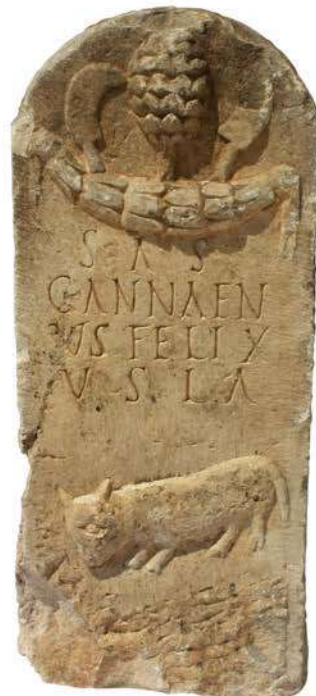 S A S
C ANNAEN
VS FELIX
V S L A